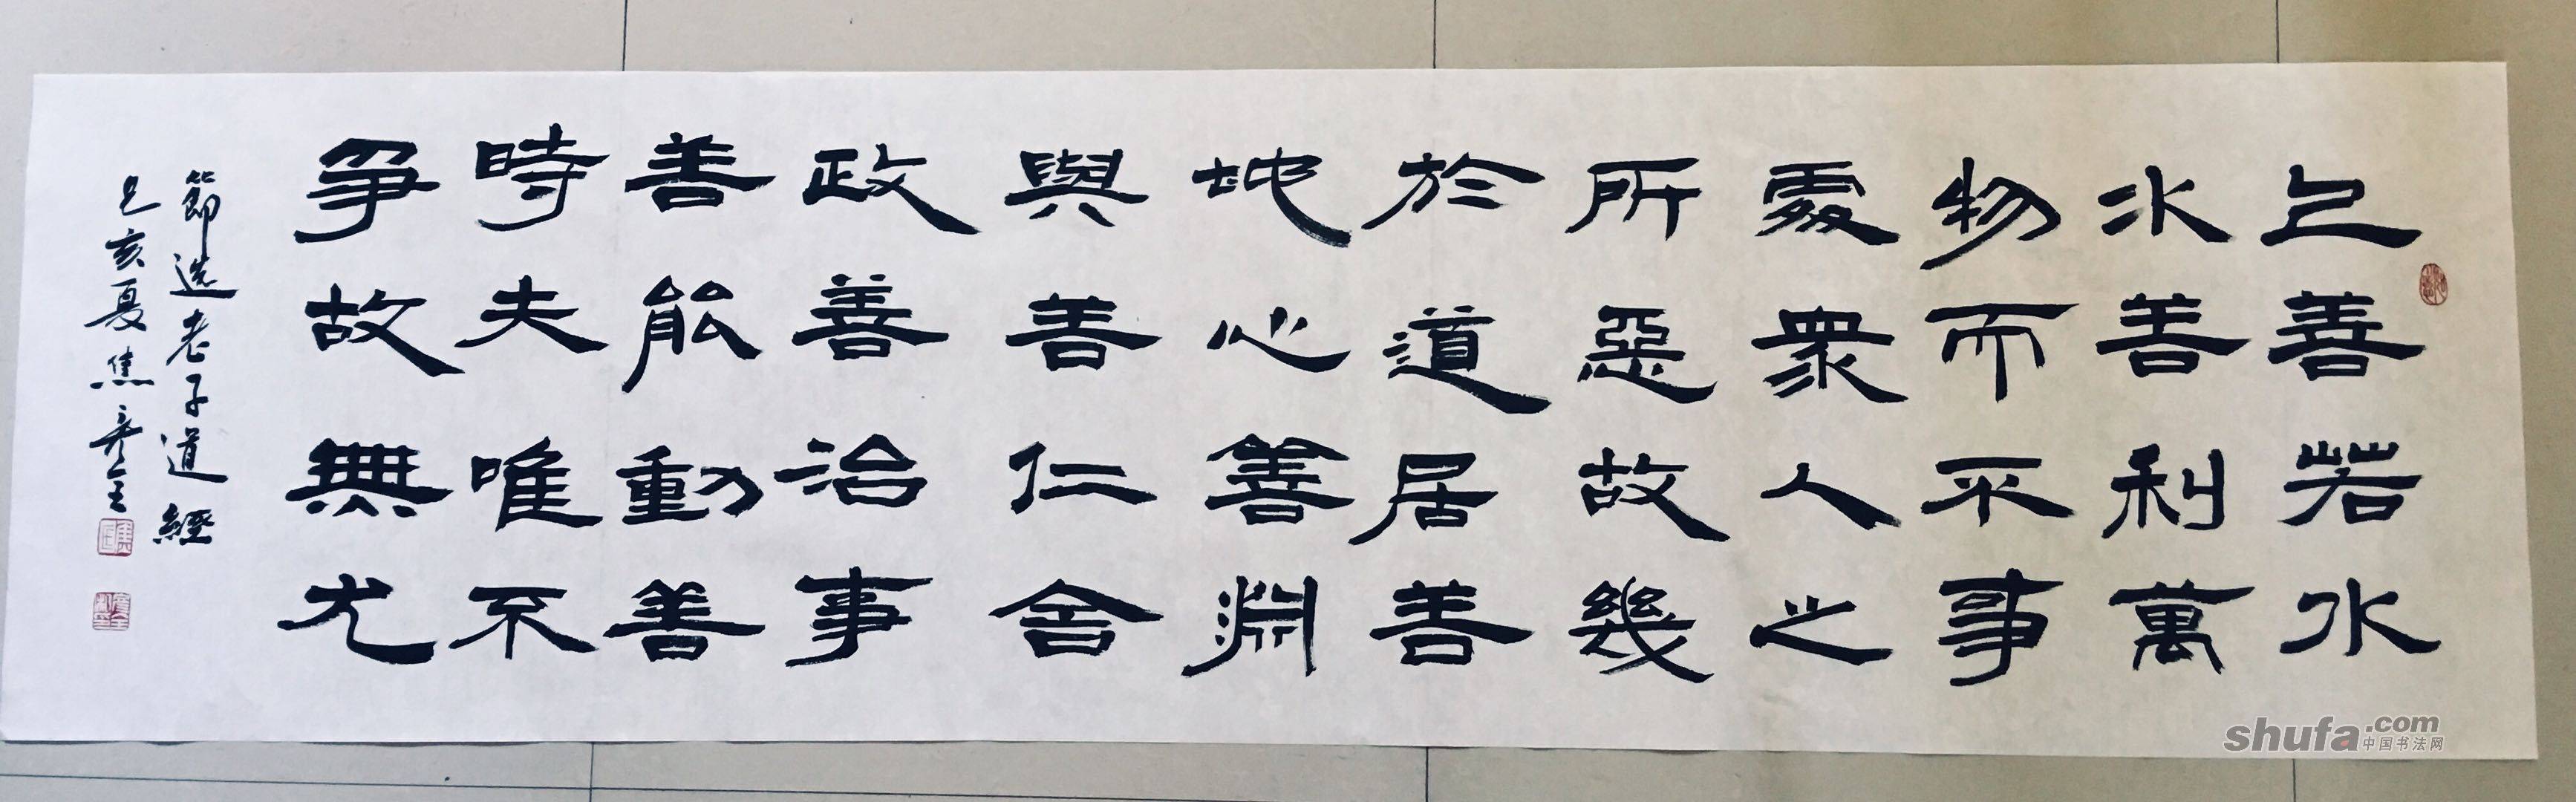 上善若水
水善利萬
物而不事
處衆人之
所惡故幾
於道居善
地心善淵
與善仁舍
政善治事
善能動善
時夫唯不
爭故無尤
節選老子道經
己亥夏焦
shufa.com
中国书法网